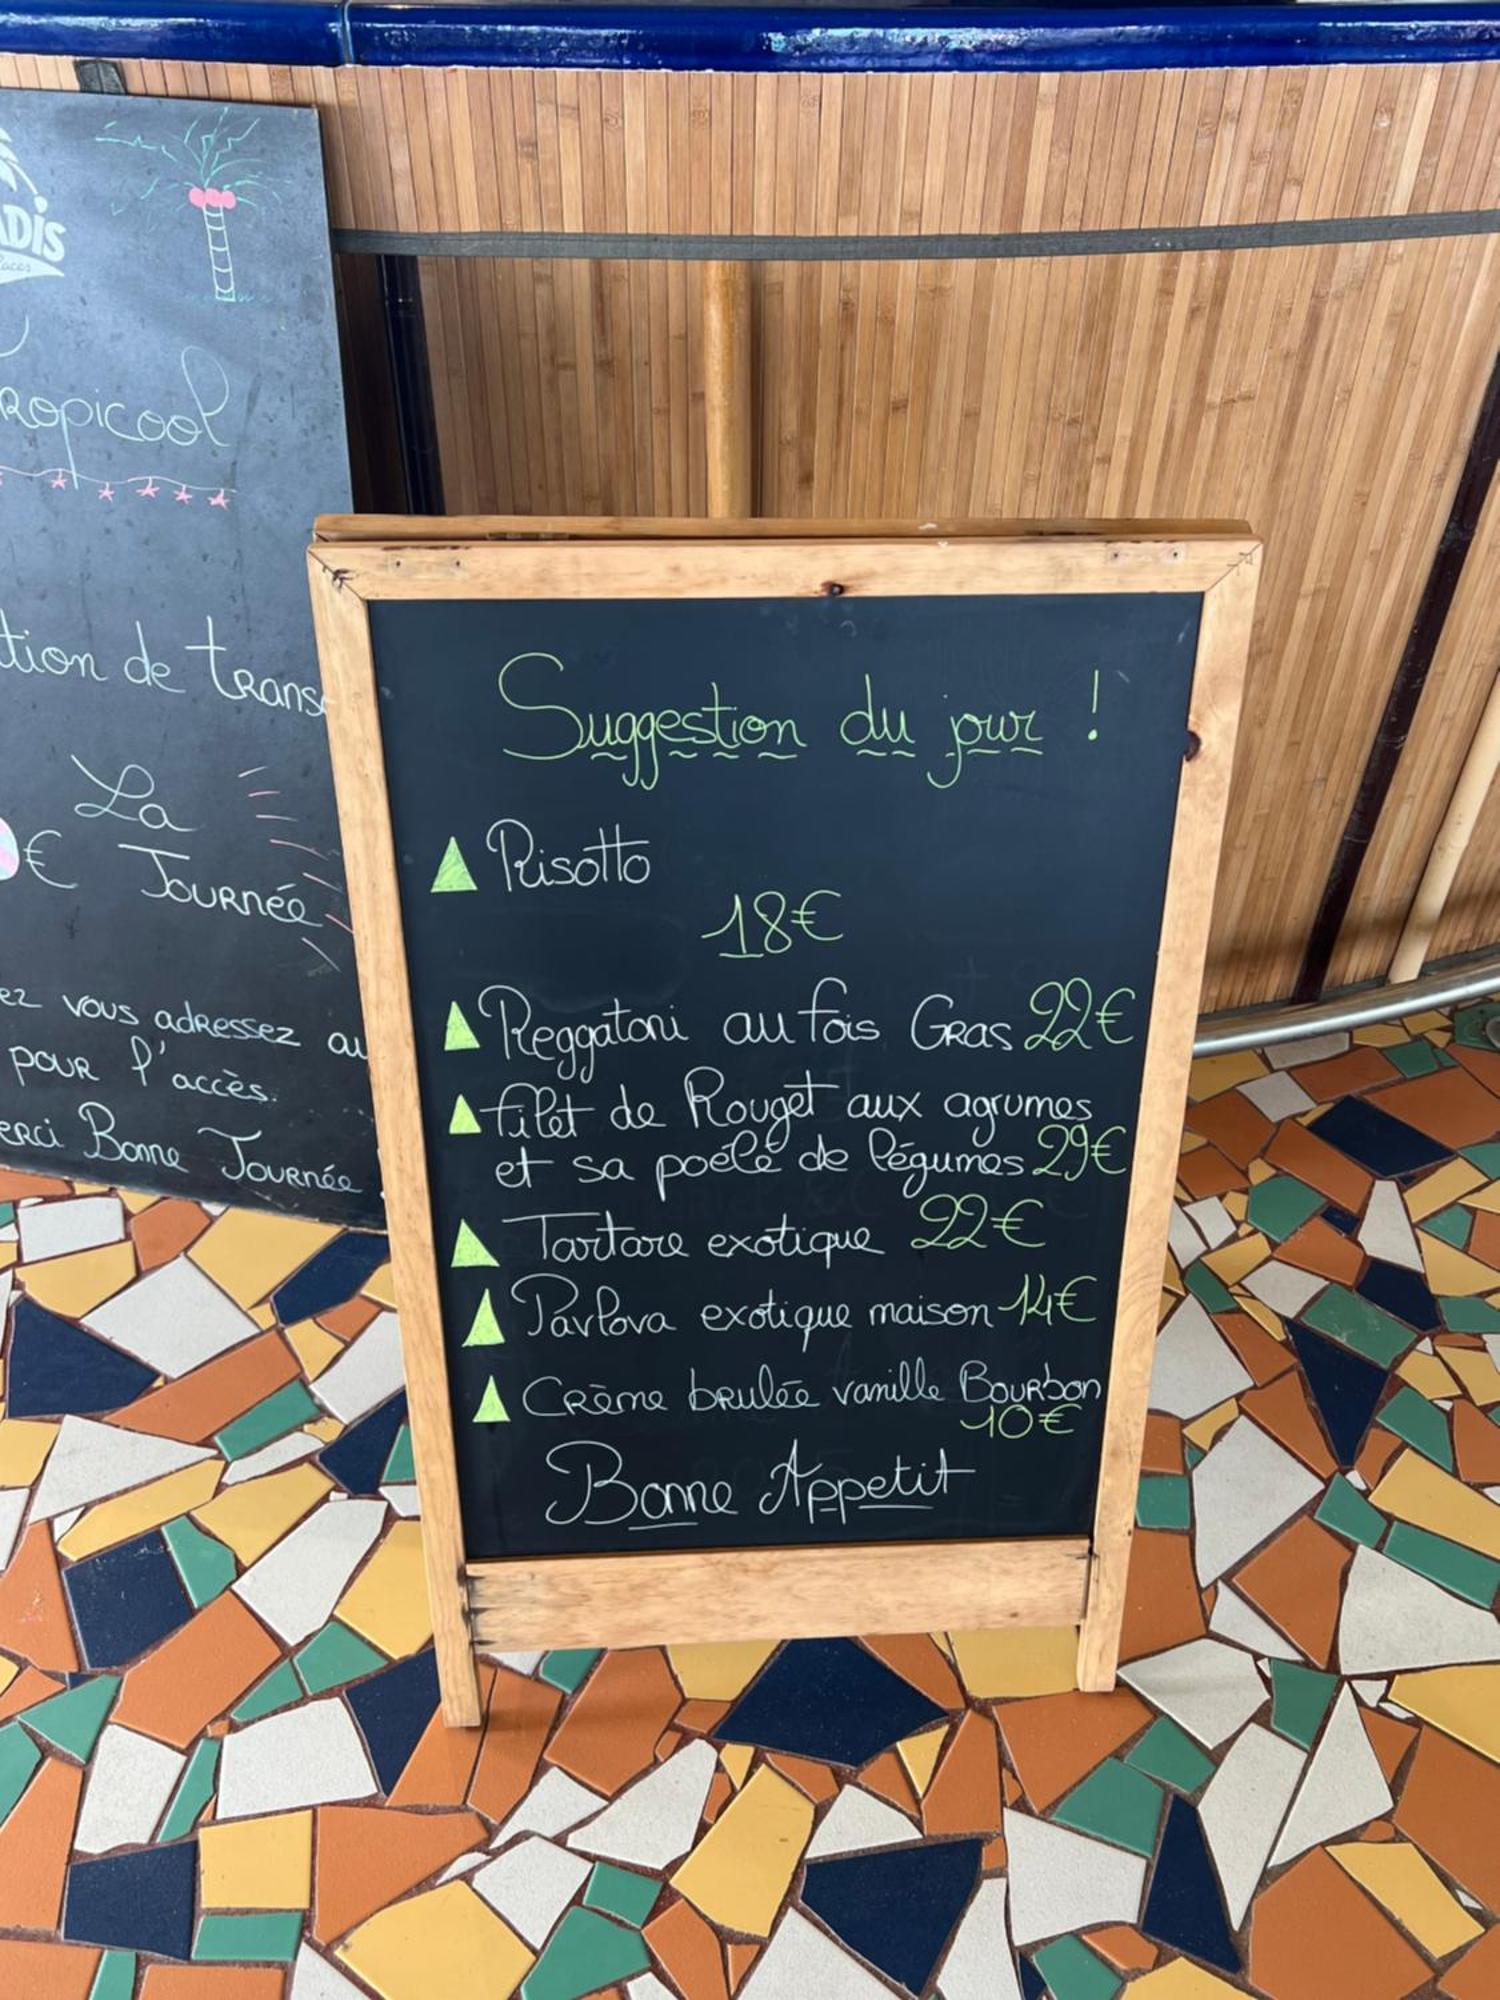 DIS
ROPICOOL
tion de trans
La
€ JOURNÉE
ez vous adressez au
pour l'accès.
erci Bonne Journée
Suggestion du jour !
Risotto
18€
Reggatoni au fois Gras 22€
filet de Rouget aux agrumes
et sa poélé de légumes 29€
Tartare exotique 22€
Pavlova exotique maison 14€
Crème brulée vanille Bourbon
10€
Bonne Appetit